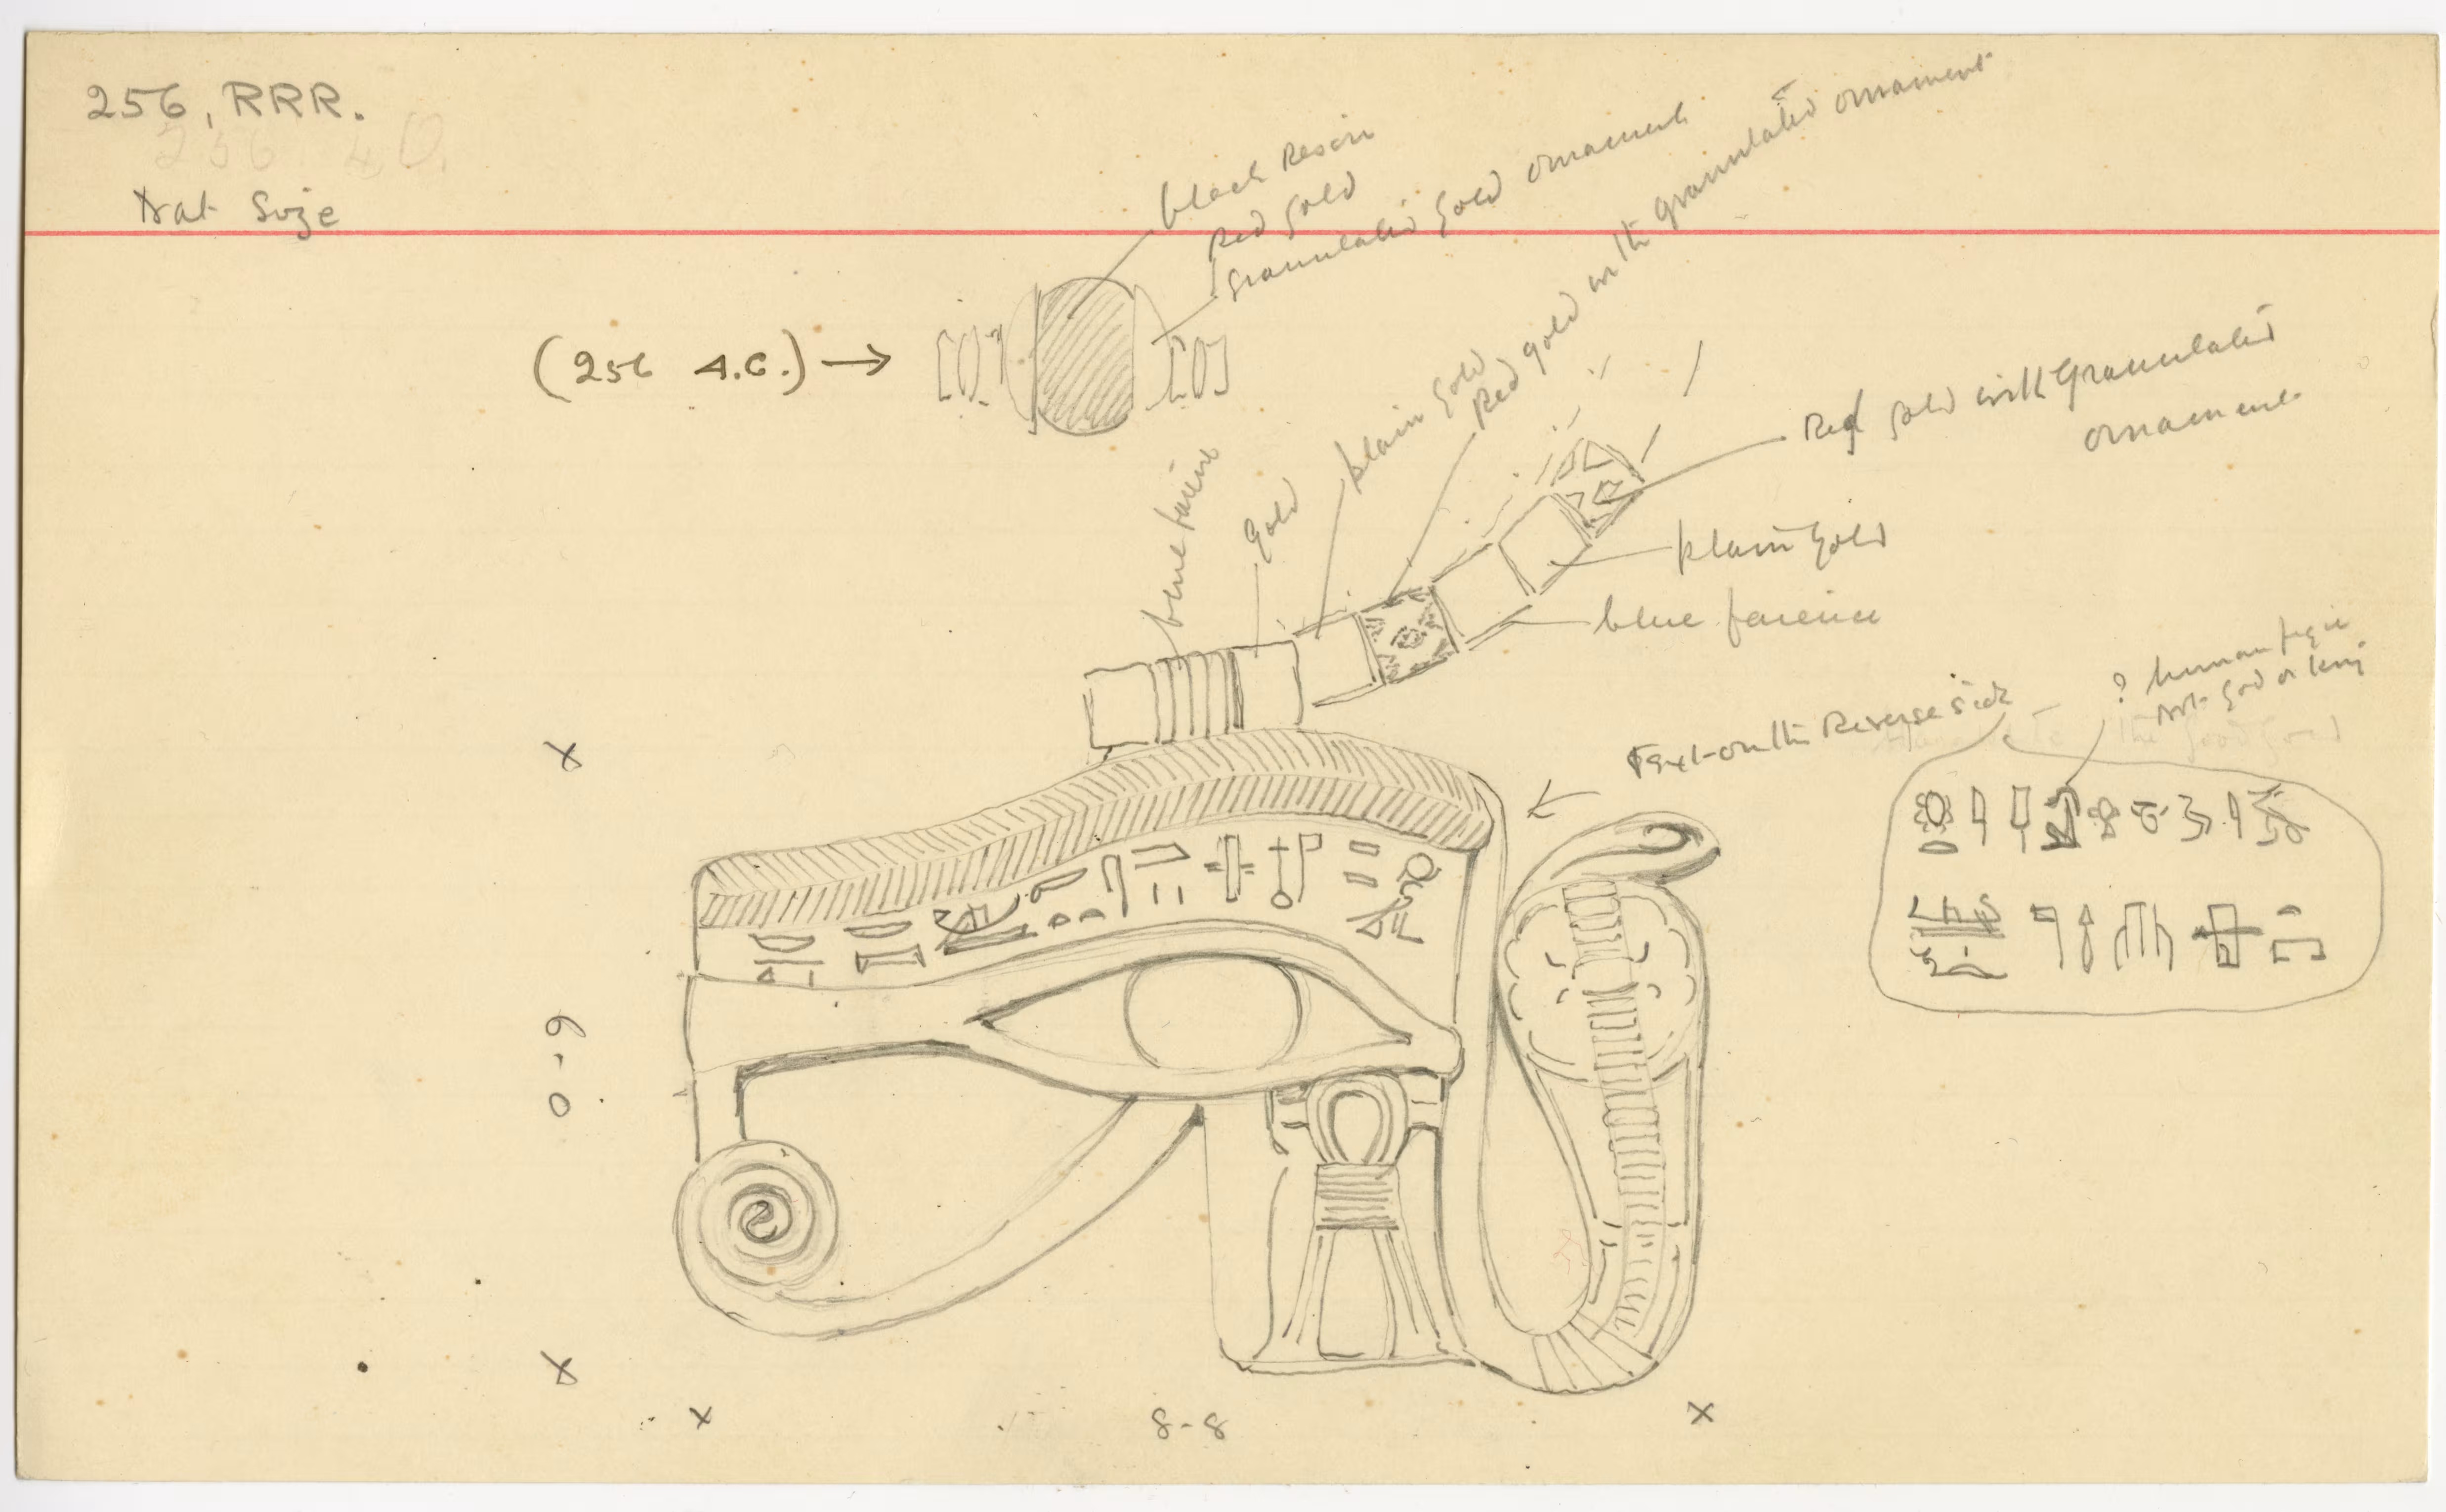 256, RRR.
256 4 O.
Nat Size
black Resin
Red gold
granulated gold ornament
(256 4.C.) →
plain gold
Red gold with granulated ornament
Red gold with granulated
ornament
blue faience
gold
plain gold
blue faience
Text on the Reverse side
? human figure
not god or king
the good god
6-0
8-8